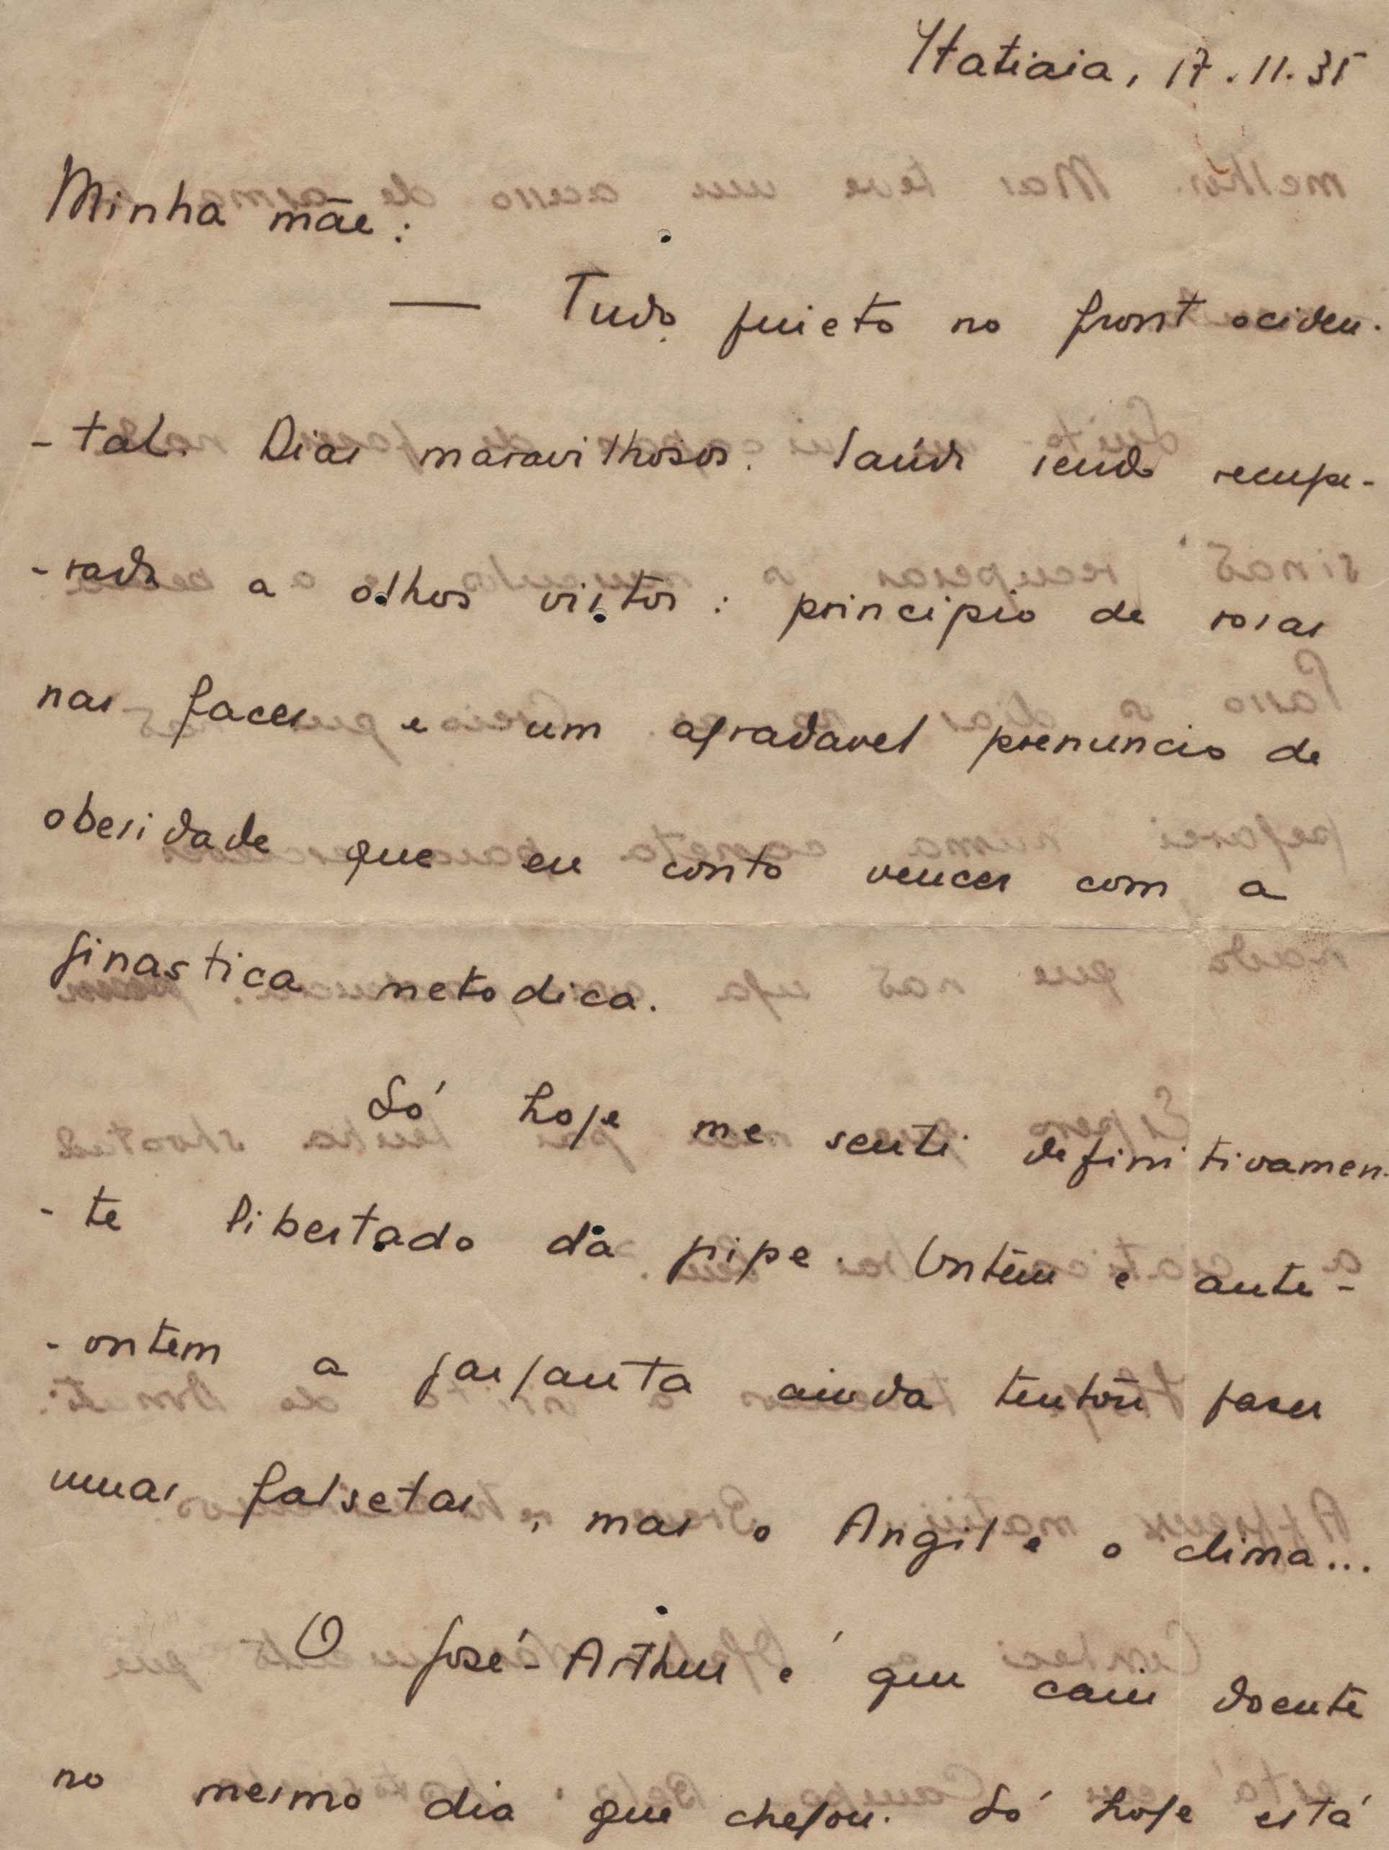 Itatiaia, 17.11.35
Minha mãe:
— Tudo quieto no front ociden-
-tal. Dias maravilhosos. Saúde sendo recupe-
-rada a olhos vistos: principio de rosas
nas faces e um agradavel prenuncio de
obesidade que eu conto vencer com a
ginastica metodica.
Só hoje me senti definitivamen-
-te libertado da gripe. Ontem e ante-
-ontem a garganta ainda tentou fazer
umas falsetas, mas o Angil e o clima...
O José-Arthur é que caiu doente
no mesmo dia que chegou. Só hoje está